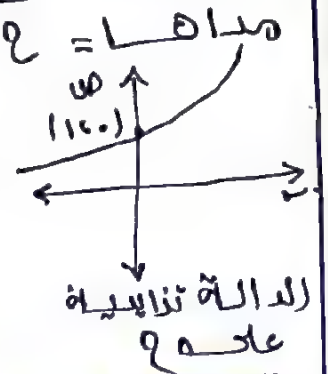 مداها = ح
ص
(١،٠)
س
الدالة تزايدية
على ح